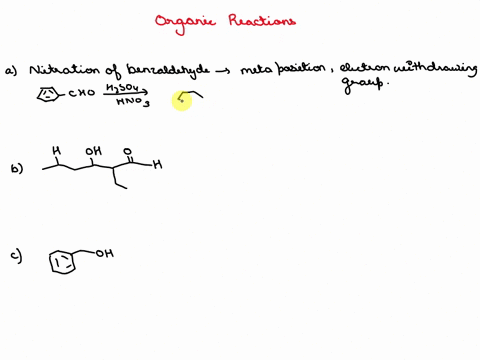 Organic Reactions
a) Nitration of benzaldehyde → meta position, electron withdrawing
group.
CHO H₂SO₄
HNO₃
b) H OH O
H
c) OH